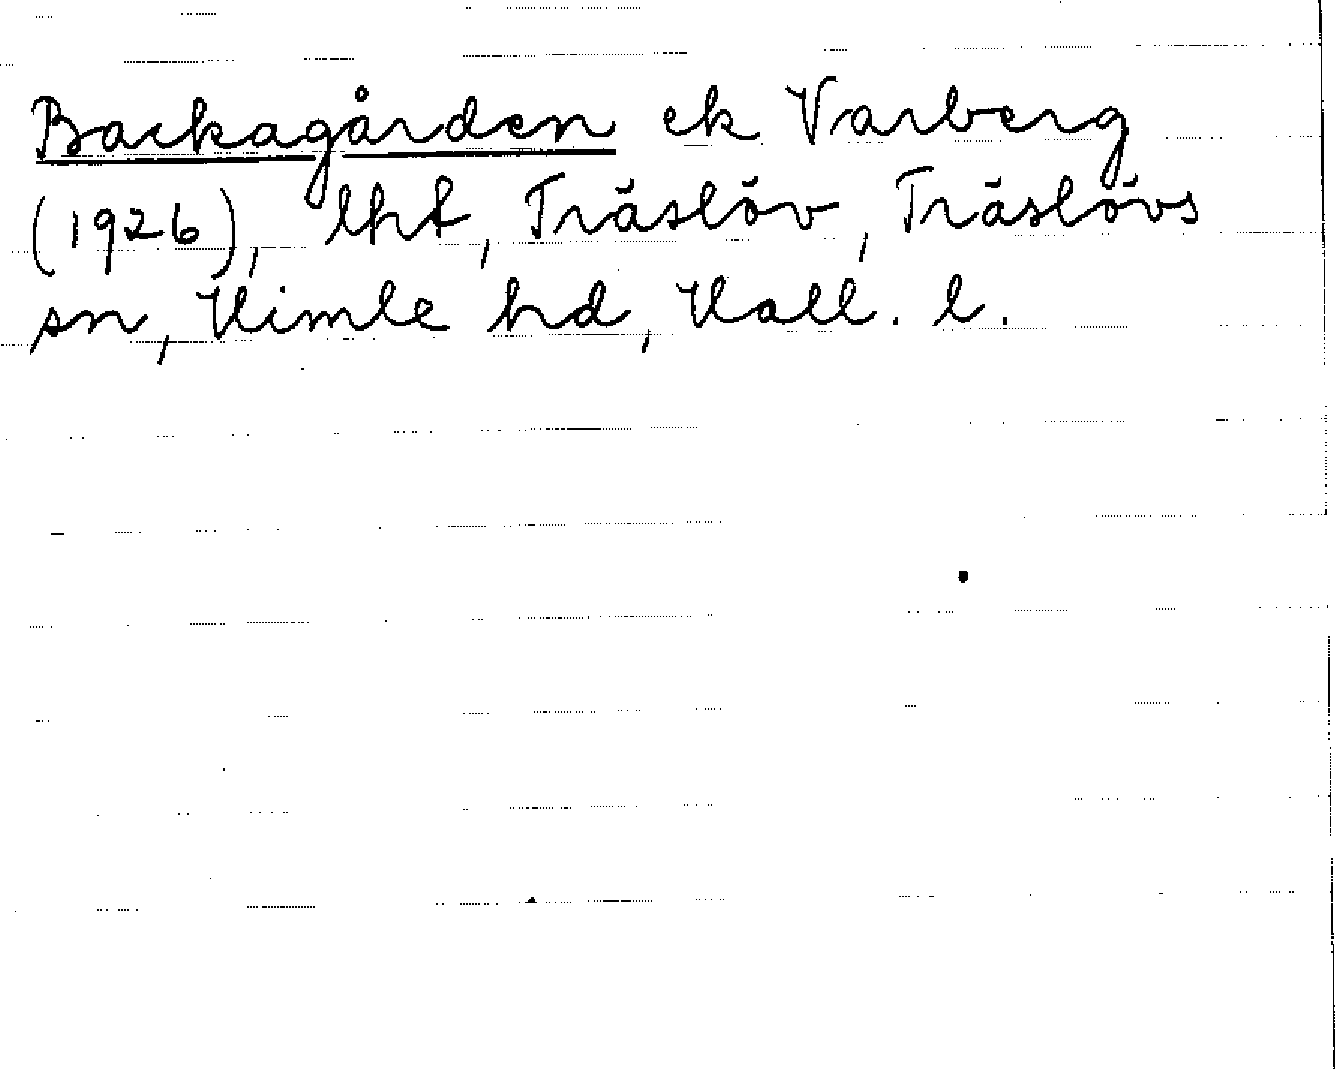 Backagården ek Varberg
(1926), lht, Träslöv, Träslövs
sn, Himle hd, Hall. l.